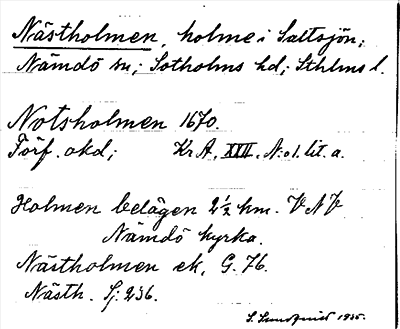 Nästholmen, holme i Saltsjön;
Nämdö sn; Sotholms hd; Sthlms l.
Notsholmen 1670.
Förf. okd; Kr A. XXII. N:o 1. lit. a.
Holmen belägen 2½ km. V N V
Nämdö kyrka.
Nästholmen ek, G. 76.
Nästh. Sj: 236.
S. Lundqvist 1935.